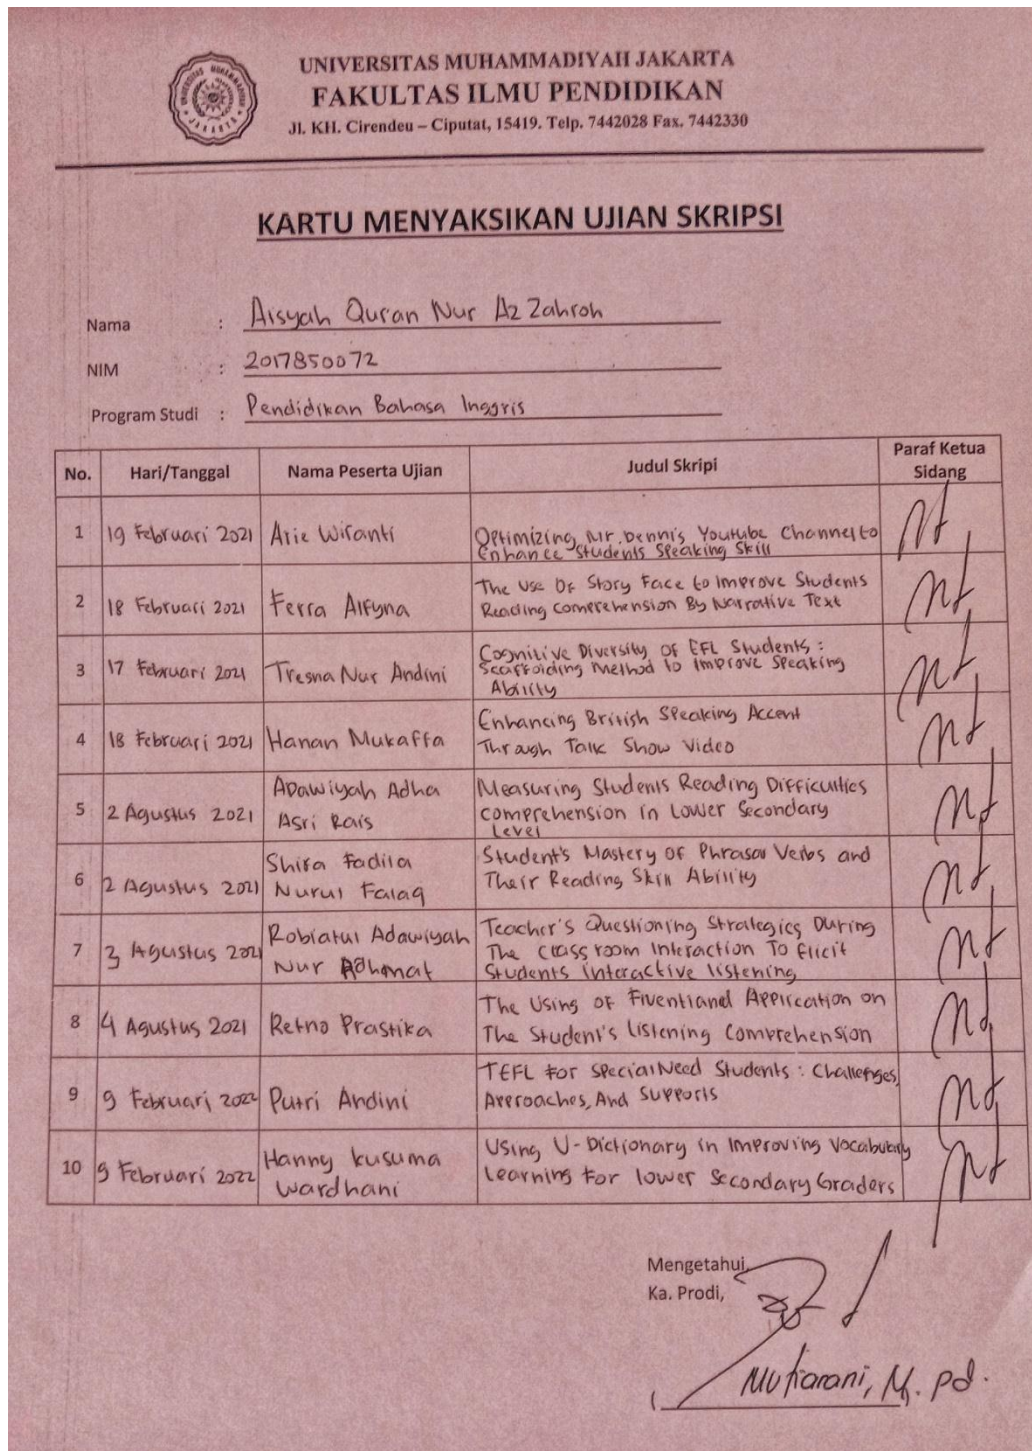 UNIVERSITAS MUHAMMADIYAH JAKARTA
FAKULTAS ILMU PENDIDIKAN
Jl. KH. Cirendeu – Ciputat, 15419. Telp. 7442028 Fax. 7442330
KARTU MENYAKSIKAN UJIAN SKRIPSI
Nama : Aisyah Quran Nur Az Zahroh
NIM : 2017850072
Program Studi : Pendidikan Bahasa Inggris
No. Hari/Tanggal Nama Peserta Ujian Judul Skripi Paraf Ketua Sidang
1 19 Februari 2021 Arie Wiranti Optimizing Mr. Denni's Youtube Channel to
Enhance Students Speaking Skill
2 18 Februari 2021 Ferra Alfyna The Use Of Story Face to Improve Students
Reading Comprehension By Narrative Text
3 17 Februari 2021 Tresna Nur Andini Cognitive Diversity of EFL Students :
Scaffolding Method to Improve Speaking
Ability
4 18 Februari 2021 Hanan Mukaffa Enhancing British Speaking Accent
Through Talk Show Video
5 2 Agustus 2021 Adawiyah Adha
Asri Rais
Measuring Students Reading Difficulties
comprehension in Lower Secondary
Level
6 2 Agustus 2021 Shira Fadila
Nurul Falaq
Student's Mastery of Phrasal Verbs and
Their Reading Skill Ability
7 3 Agustus 2021 Robiatul Adawiyah
Nur Rahmat
Teacher's Questioning Strategies During
The Classroom Interaction To Elicit
Students interactive listening
8 4 Agustus 2021 Retno Prastika The Using of Application on
The Student's Listening Comprehension
9 9 Februari 2022 Putri Andini TEFL For Special Need Students : Challenges,
Approaches, And Supports
10 9 Februari 2022 Hanny Kusuma
Wardhani
Using U-Dictionary in Improving Vocabulary
Learning For lower Secondary Graders
Mengetahui,
Ka. Prodi,
Mutiarani, M. Pd.